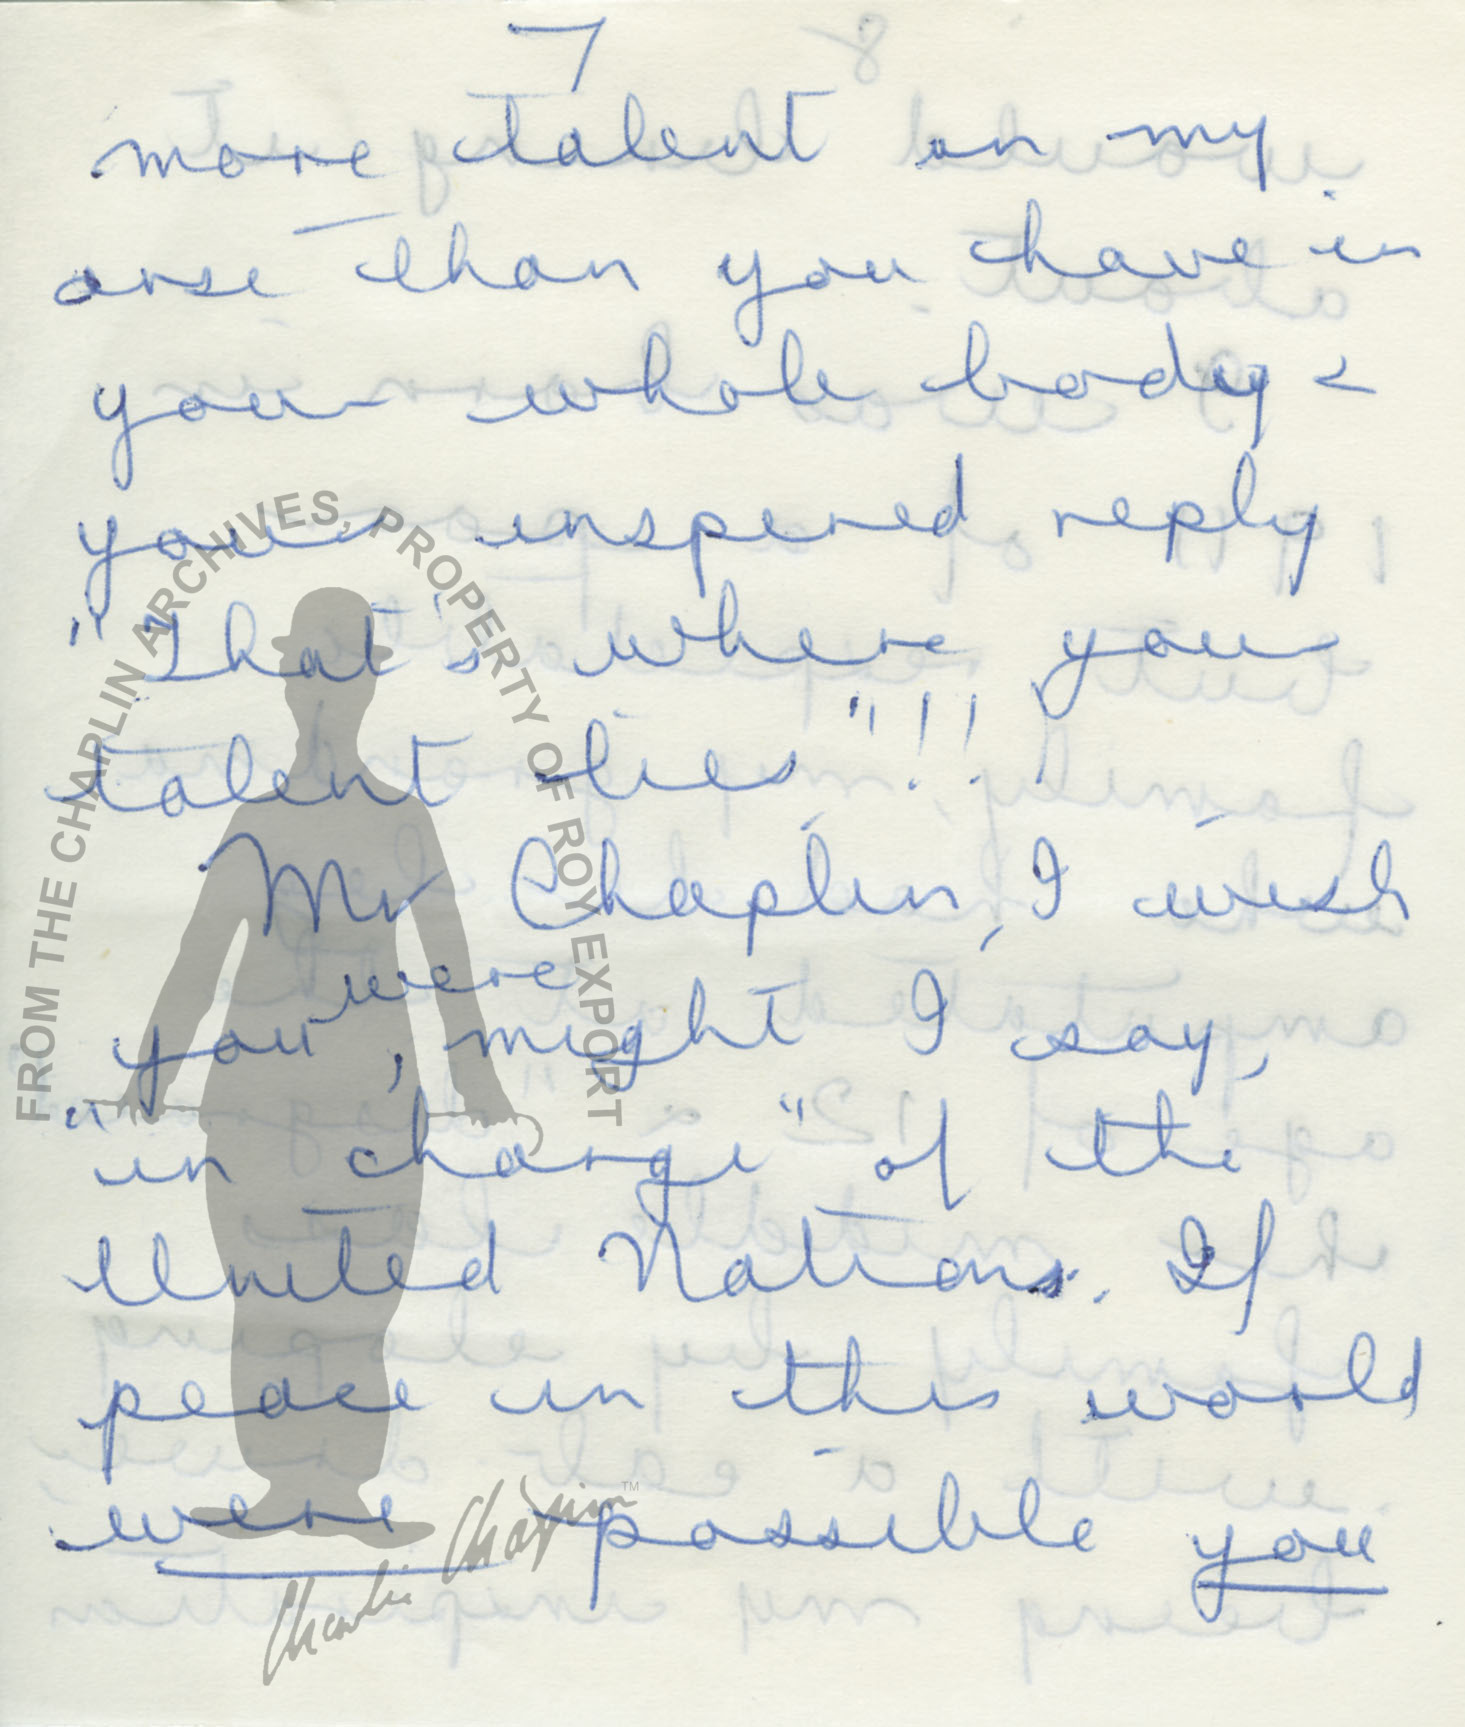 7
more talent in my
arse than you have in
your whole body &
your inspired reply
"That's where your
talent lies"!!!
Mr Chaplin, I wish
were
you, might I say,
"in charge" of the
United Nations. If
peace in this world
were possible you
FROM THE CHAPLIN ARCHIVES, PROPERTY OF ROY EXPORT
Charlie Chaplin™